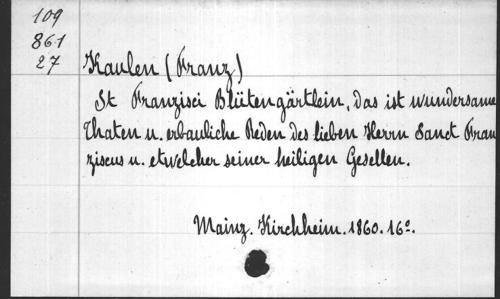 109
861
27
Kaulen (Franz)
St Franzisci Blütengärtlein, das ist wundersame
Thaten u. erbauliche Reden des lieben Herrn Sanct Fran
ziscus u. etwelcher seiner heiligen Gesellen.
Mainz. Kirchheim. 1860. 16º.